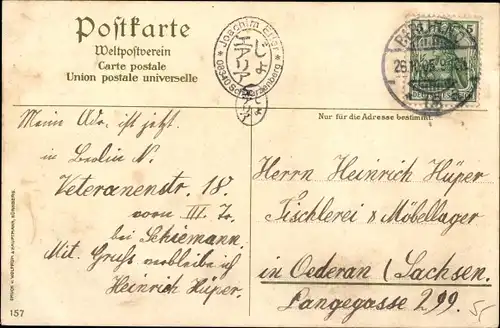 Postkarte
Weltpostverein
Carte postale
Union postale universelle
Joachim Erler
08340 Schwarzenberg
BERLIN
5
Nur für die Adresse bestimmt.
Meine Adr. ist jetzt.
in Berlin N.
Veteranenstr. 18.
vorn III. Tr.
bei Schiemann.
Mit Gruß verbleibe ich
Heinrich Hüper.
Herrn Heinrich Hüper
Tischlerei & Möbellager
in Oederan (Sachsen.
Langegasse 299.
157